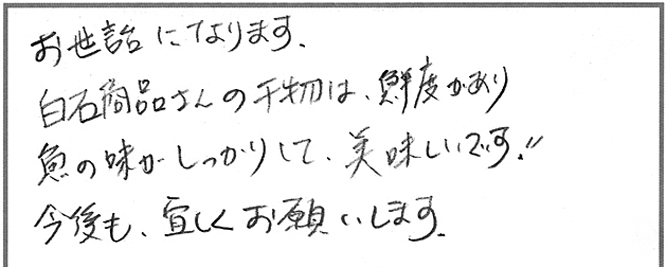 お世話になります.
白石商品さんの干物は、鮮度があり
魚の味がしっかりして、美味しいです!!
今後も、宜しくお願いします.